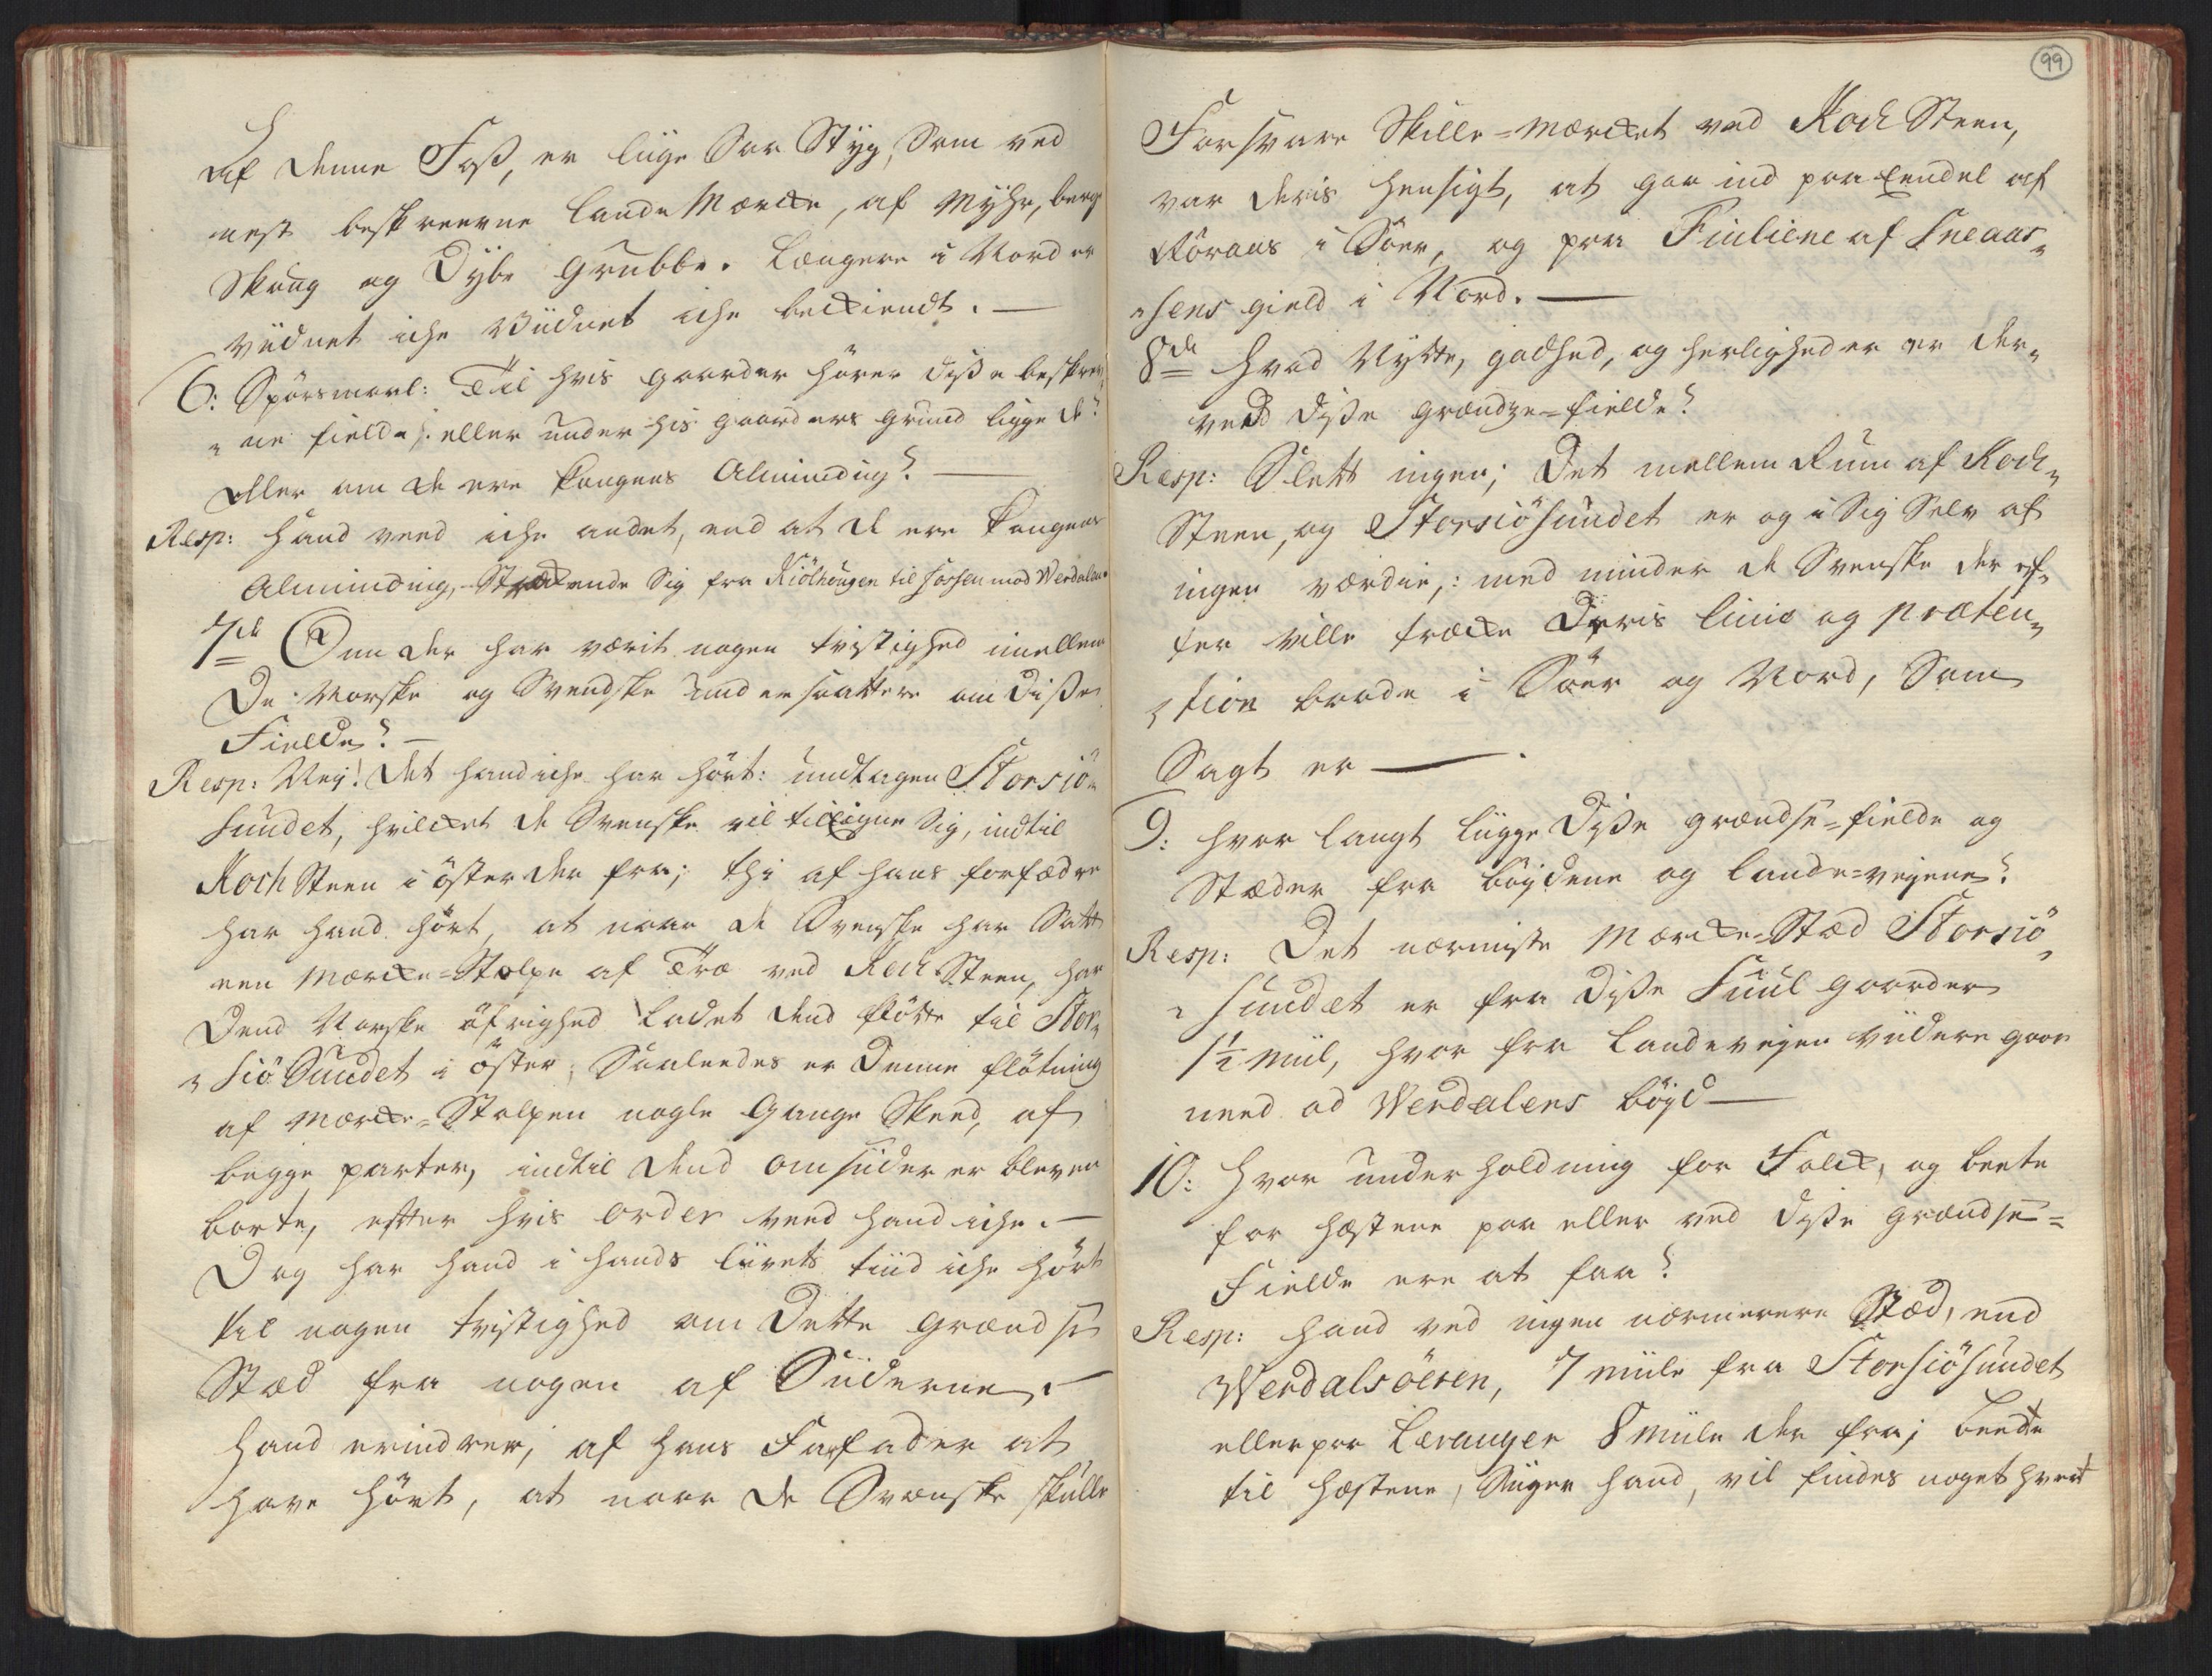 af denne Foss, er liige saa Styg, Som ved
nest beskreevne lande Mærcke, af Myhr, berg
Skoug og Dybe Grubbe. Længere i Nord er
viidnet iche viidnet iche beckiendt. —
6: Spörsmaal: Til hvis gaarder hörer disse beskrev„
„ne fielde; eller under his gaarders grund ligge de?
eller om de ere Kongens Alminding? —
Resp: hand veed iche andet, end at de ere Kongens
Alminding, Strækende Sig fra Kiölhougen til forsen mod Werdalen.
7de Om der har værit nogen tvistighed imellem
De Norske og Svendske undersaattere om disse
Fielde? —
Resp: Ney! det hand iche har hört: undtagen Storsiö„
sundet, hvilcket de Svenske vil tilEigne Sig, indtil
Koch Steen i öster der fra; thi af hans forfædre
har hand hört, at naar de Svenske har Satt
een Mærcke=Stolpe af Træ ved Koch Steen, har
Dend Norske öfrighed Ladet dend flötte til Stor„
„siö Sundet i öster, Saaleedes er Denne flötning
af Mærcke=Stolpen nogle Gange Skeed, af
begge parter, indtil dend omsiider er bleven
borte, efter hvis order veed hand iche. —
Dog har hand i hands liivets tiid iche hört
til nogen tvistighed om Dette grændse
Stæd fra nogen af Siiderne. —
Hand erindrer, af hans Farfader at
have hört, at naar de Svenske skulle
99
Forsvare Skille=Mærcket ved Koch Steen,
var deris hensigt, at gaa ind paa Eendel af
Röraas i Söer, og paa Finliene af Sneaas„
„sens gield i Nord. —
8de Hvad Nytte, godhed, og herligheder er der„
veed disse grændze=fielde?
Resp: Slett ingen; Det mellem Rum af Koch„
Steen, og Storsiösundet er og i Sig Selv af
ingen værdie,: med minder de Svenske der ef„
ter ville træcke Deris linie og præten„
„tion baade i Söer og Nord, Som
Sagt er — .
9: hvor langt liigge Disse grændse=fielde og
Stæder fra böydene og lande=veyene?
Resp: Det nærmeste Mærcke=Stæd Storsiö„
„sundet er fra Disse Suul gaarder
1½ Miil, hvor fra Landeveyen viidere gaar
need ad Werdalens böyd —
10: Hvor underholdning for Folck, og beete
for hæstene paa eller ved disse grændse=
Fielde ere at faa?
Resp: hand ved ingen nærmerere Stæd, end
Werdalsöeren, 7 miile fra Storsiösundet
eller paa Levanger 8 Miile der fra; beete
til hæstene, Siiger hand, vil findes noget hvert